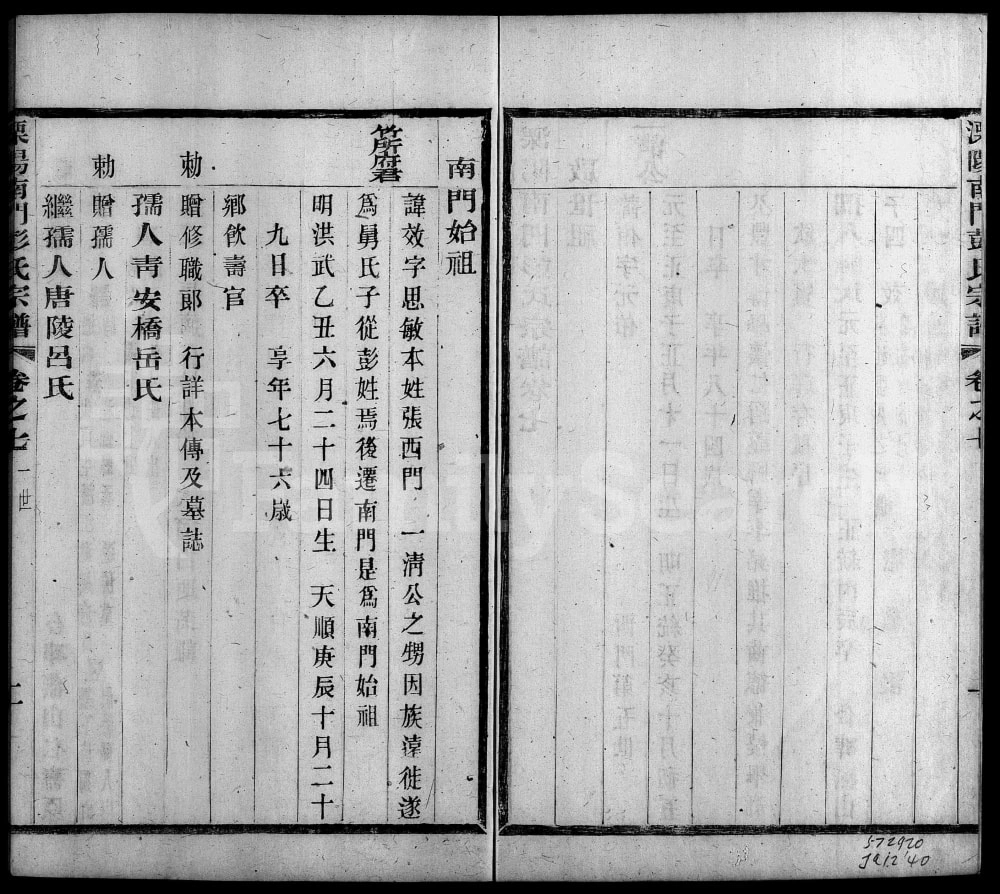 溧陽南門彭氏宗譜
卷之七
一
南門始祖
篛府君
諱效字思敏本姓張西門 一淸公之甥因族遠徙遂
爲舅氏子從彭姓焉後遷南門是爲南門始祖
明洪武乙丑六月二十四日生 天順庚辰十月二十
九日卒 享年七十六歲
鄉飮壽官
勅贈修職郞 行詳本傳及墓誌
孺人靑安橋岳氏
勅贈孺人
繼孺人唐陵呂氏
溧陽南門彭氏宗譜
卷之七
一世
572920
Ja12'40